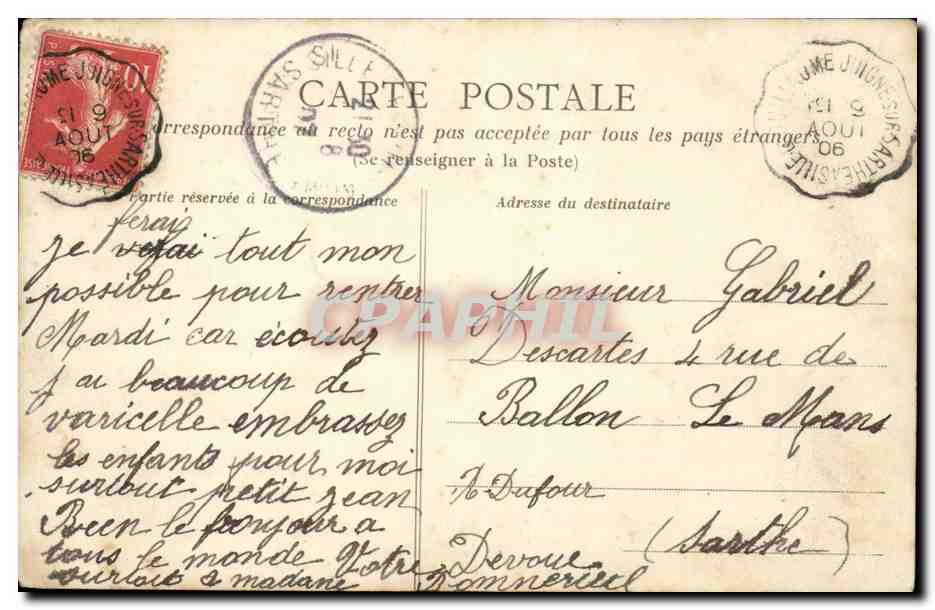 CARTE POSTALE
Correspondance au recto n'est pas acceptée par tous les pays étrangers
(Se renseigner à la Poste)
Partie réservée à la correspondance
Adresse du destinataire
9
AOUT
06
9
AOUT
06
SILLE
SARTHE
CPAPHIL
ferai
je verai tout mon
possible pour rentrer
Mardi car écoutez
j ai beaucoup de
varicelle embrassez
les enfants pour moi
surtout petit jean
Been le bonjour a
tous le monde Votre Devoue
surtout a madame
Monsieur Gabriel
Descartes 4 rue de
Ballon Le Mans
A Dufour
(Sarthe)